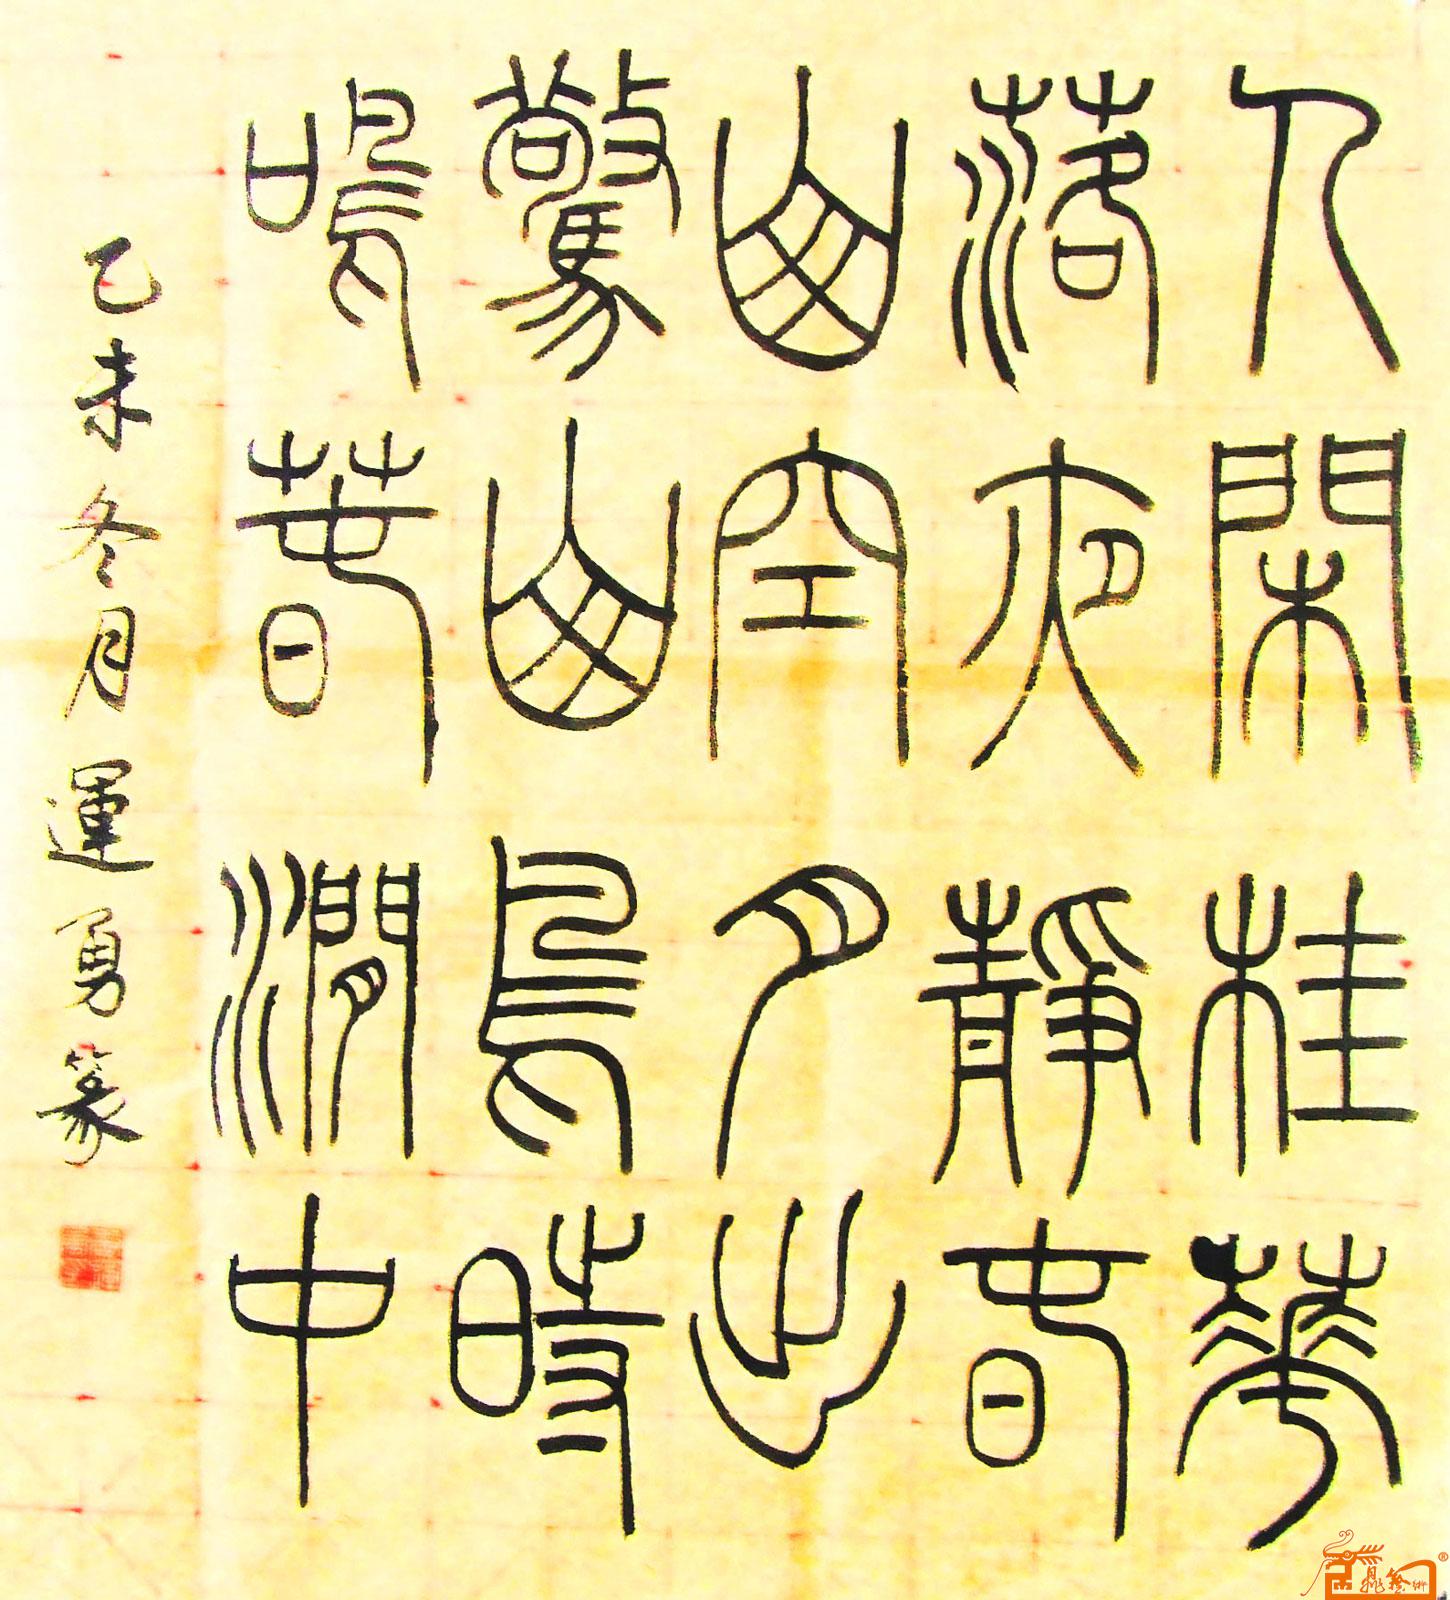 人閑桂華
落夜靜春
山空月出
驚山鳥時
鳴春澗中
乙未冬月運勇篆